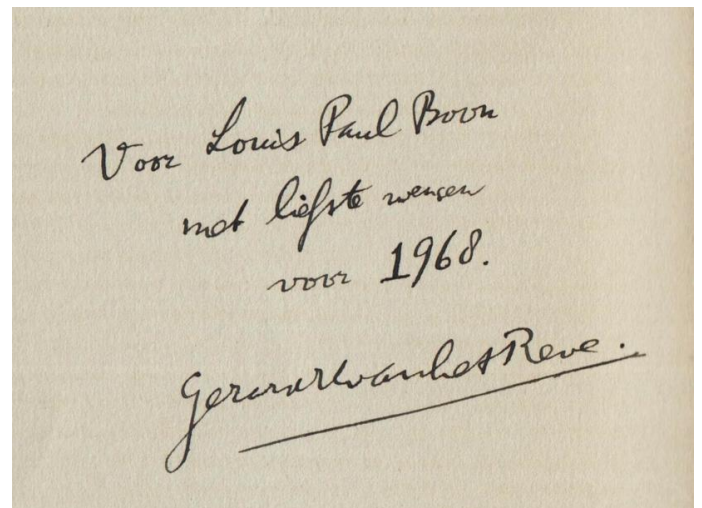 Voor Louis Paul Boon
met liefste wensen
voor 1968.
GerardKvanhetReve.